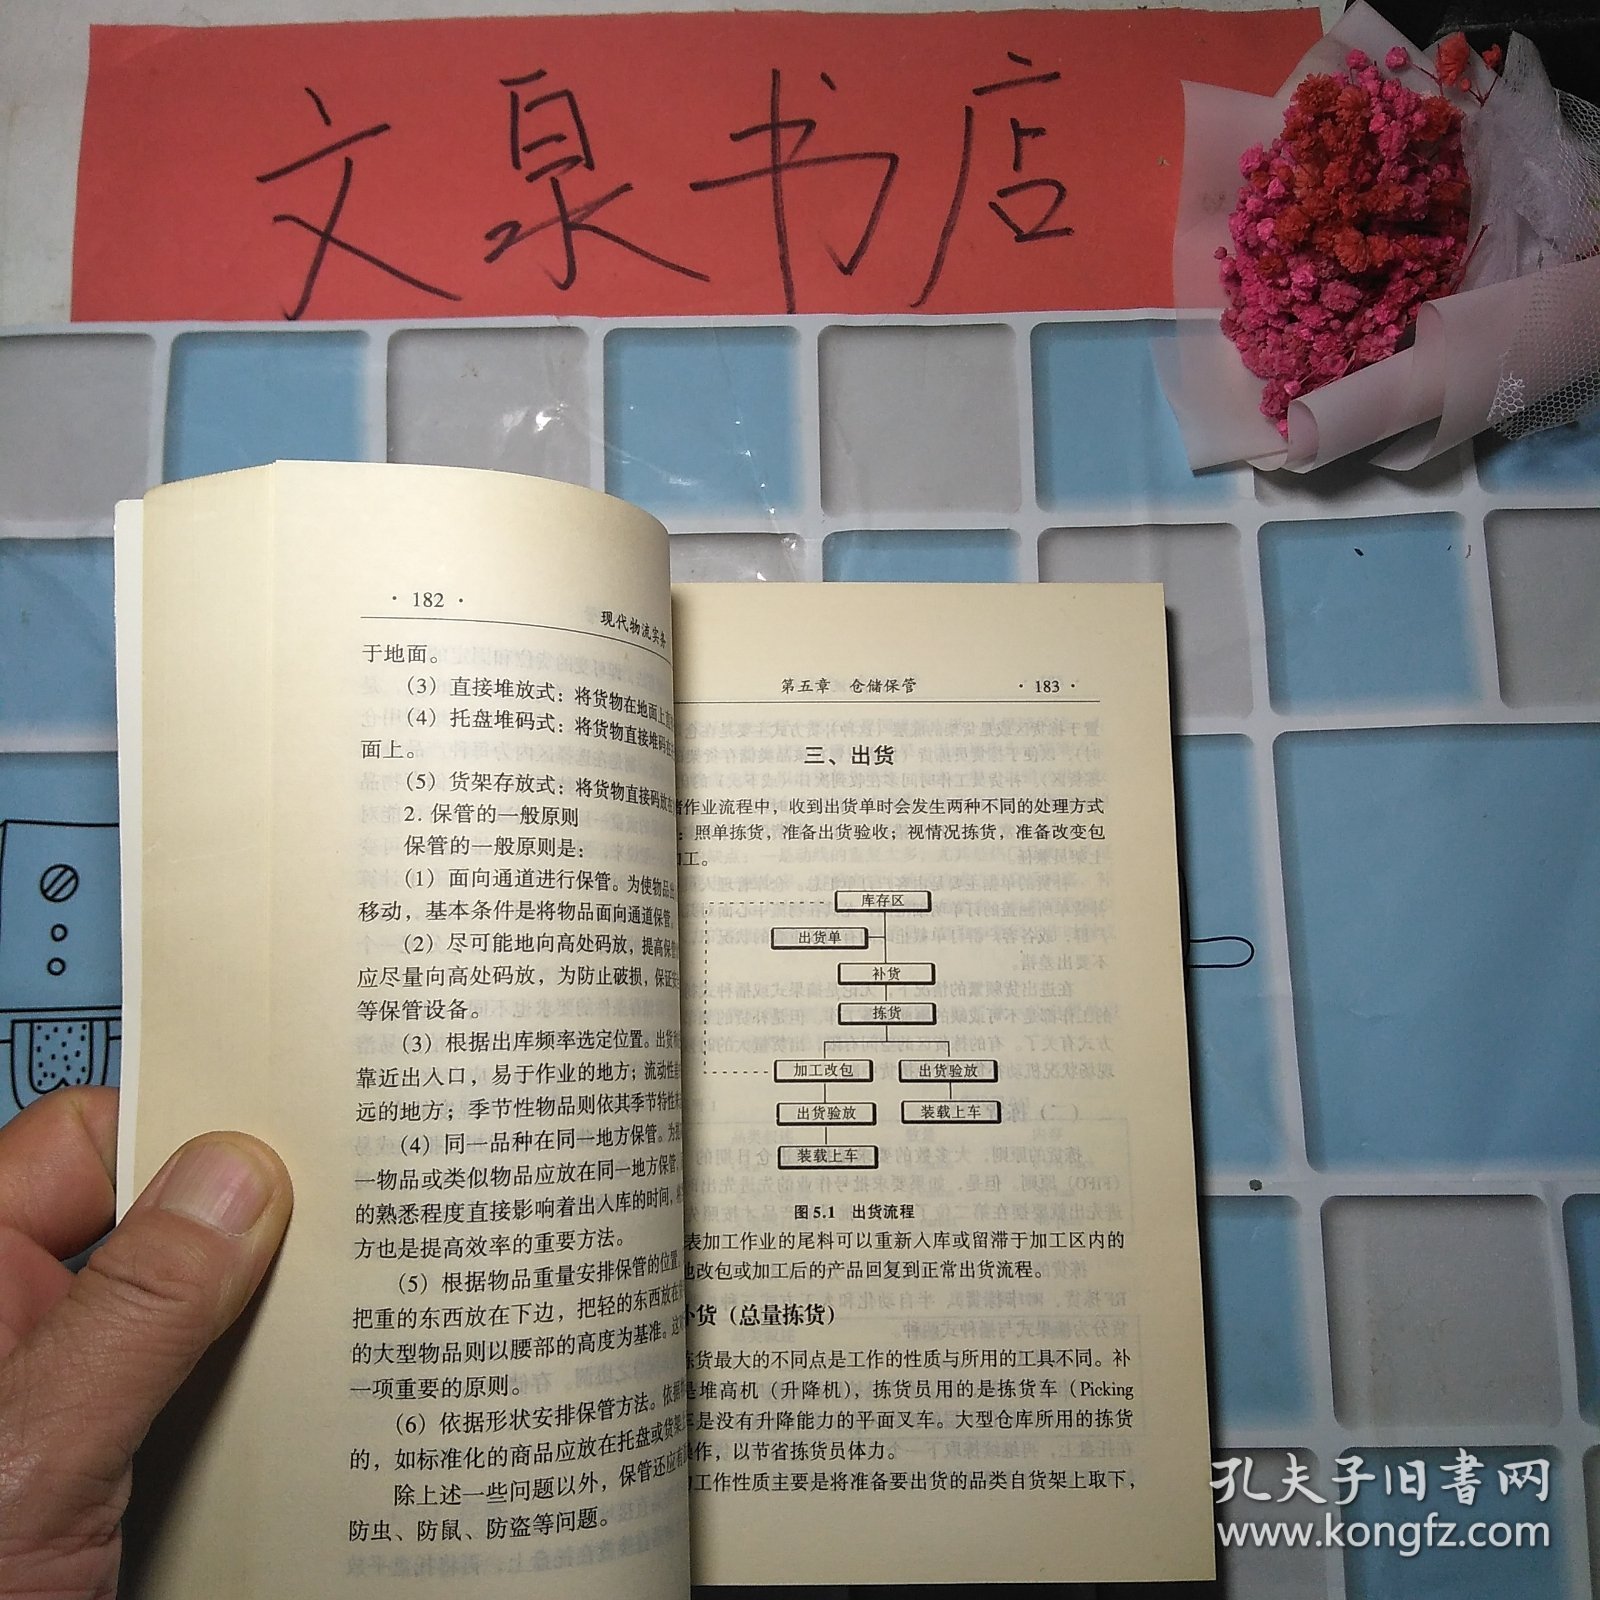 文泉书店
· 182 ·
现代物流实务
于地面。
(3) 直接堆放式：将货物在地面上直
(4) 托盘堆码式：将货物直接堆码在
面上。
(5) 货架存放式：将货物直接码放在
2. 保管的一般原则
保管的一般原则是：
(1) 面向通道进行保管。为使物品出
移动，基本条件是将物品面向通道保管。
(2) 尽可能地向高处码放，提高保管
应尽量向高处码放，为防止破损，保证安
等保管设备。
(3) 根据出库频率选定位置。出货和
靠近出入口，易于作业的地方；流动性差
远的地方；季节性物品则依其季节特性来
(4) 同一品种在同一地方保管。为提
一物品或类似物品应放在同一地方保管，
的熟悉程度直接影响着出入库的时间，将
方也是提高效率的重要方法。
(5) 根据物品重量安排保管的位置。
把重的东西放在下边，把轻的东西放在
的大型物品则以腰部的高度为基准。这
一项重要的原则。
(6) 依据形状安排保管方法。依据
的，如标准化的商品应放在托盘或货架
除上述一些问题以外，保管还应有
防虫、防鼠、防盗等问题。
第五章 仓储保管
· 183 ·
三、出货
作业流程中，收到出货单时会发生两种不同的处理方式
：照单拣货，准备出货验收；视情况拣货，准备改变包
工。
库存区
出货单
补货
拣货
加工改包
出货验放
出货验放
装载上车
装载上车
图 5.1 出货流程
表加工作业的尾料可以重新入库或留滞于加工区内的
改包或加工后的产品回复到正常出货流程。
货（总量拣货）
拣货最大的不同点是工作的性质与所用的工具不同。补
是堆高机（升降机），拣货员用的是拣货车（Picking
是没有升降能力的平面叉车。大型仓库所用的拣货
操作，以节省拣货员体力。
工作性质主要是将准备要出货的品类自货架上取下，
孔夫子旧书网
www.kongfz.com